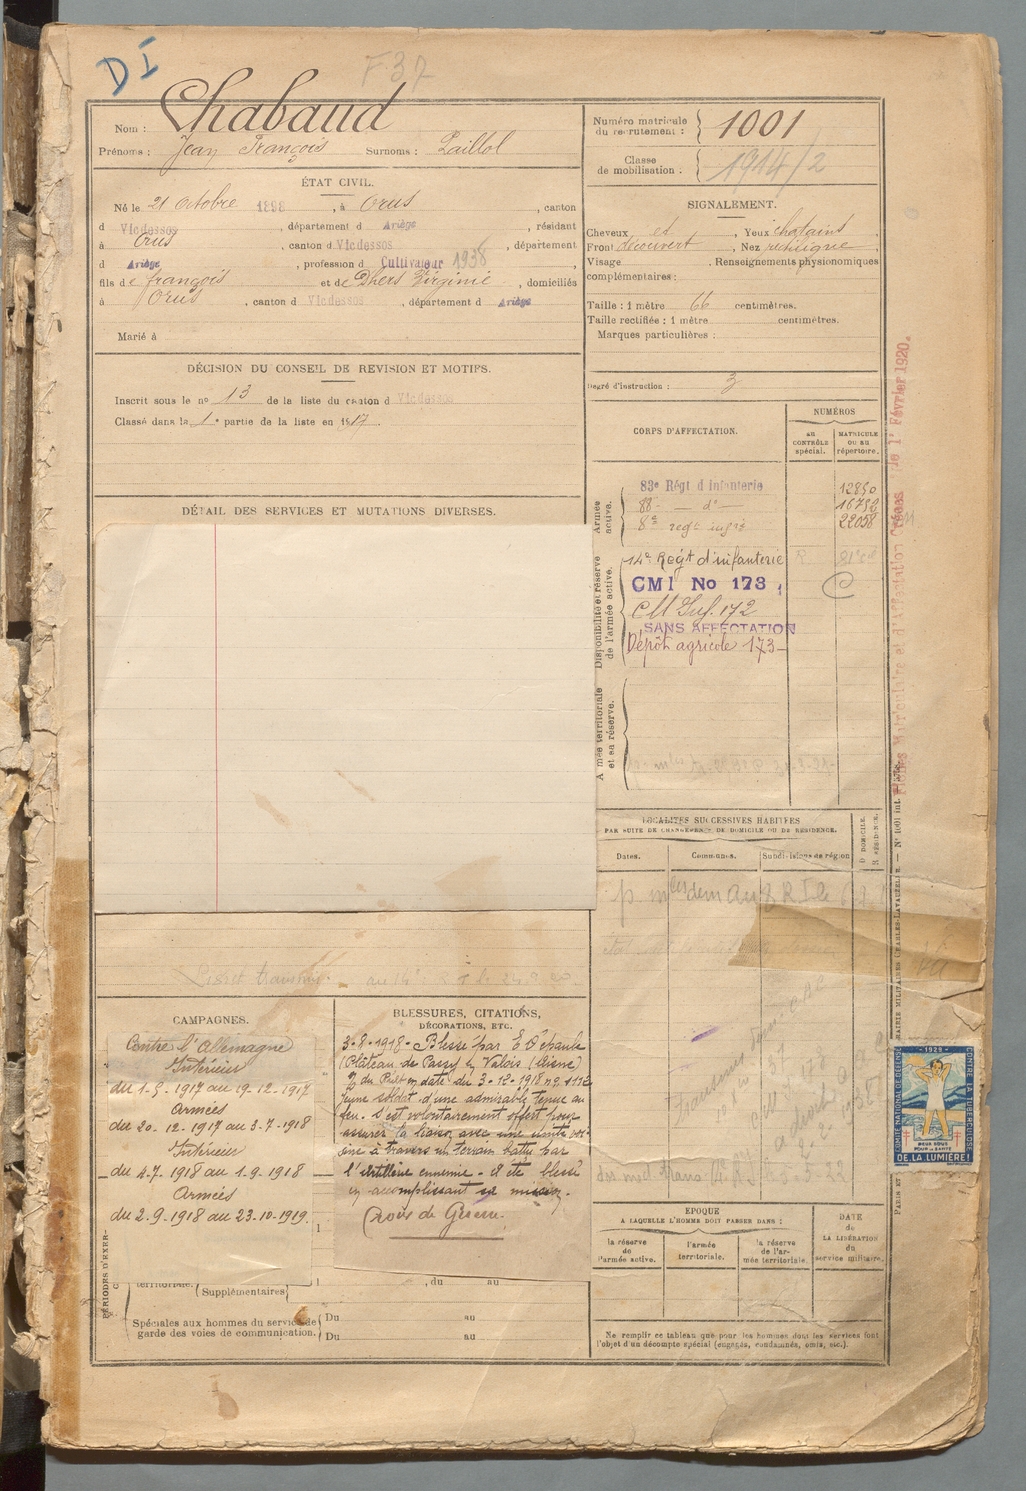 DI
F 37
Nom : Chabaud
Prénoms : Jean François Surnoms : Paillol
Numéro matricule du recrutement : 1001
Classe de mobilisation : 1914/2
ÉTAT CIVIL.
Né le 21 Octobre 1898, à Orus, canton
d Vicdessos, département d Ariège, résidant
à Orus, canton d Vicdessos, département
d Ariège, profession d Cultivateur 1938
fils de françois et de Dhers Virginie, domiciliés
à Orus, canton d Vicdessos, département d Ariège
Marié à
SIGNALEMENT.
Cheveux et, Yeux chatains
Front découvert, Nez rectiligne
Visage , Renseignements physionomiques
complémentaires :
Taille : 1 mètre 66 centimètres.
Taille rectifiée : 1 mètre centimètres.
Marques particulières :
Degré d'instruction : 3
DÉCISION DU CONSEIL DE REVISION ET MOTIFS.
Inscrit sous le no 13 de la liste du canton d Vicdessos
Classé dans la 1e partie de la liste en 1917
DÉTAIL DES SERVICES ET MUTATIONS DIVERSES.
CORPS D'AFFECTATION.
NUMÉROS
au CONTRÔLE spécial.
MATRICULE OU AU répertoire.
Armée active.
83e Régt d'infanterie 12850
88- — do — 16752
8e regt 22058
Disponibilité et réserve de l'armée active.
14e Regt d'infanterie
CMI No 173
CM Inf. 172
SANS AFFECTATION
Dépôt agricole 173
Armée territoriale et sa réserve.
LOCALITÉS SUCCESSIVES HABITÉES
PAR SUITE DE CHANGEMENTS DE DOMICILE OU DE RÉSIDENCE.
Dates. Communes. Subdivisions de région
D DOMICILE.
R RÉSIDENCE.
Livret transmis au 14e R I le 24.9.20
CAMPAGNES.
Contre l'Allemagne
Intérieur
du 1-5-1917 au 19-12-1917
Armées
du 20-12-1917 au 3-7-1918
Intérieur
du 4-7-1918 au 1-9-1918
Armées
du 2-9-1918 au 23-10-1919.
BLESSURES, CITATIONS,
DÉCORATIONS, ETC.
3-8-1918 - Blessé par
(Plateau de Passy en Valois (Aisne)
du Rgt en date du 3-12-1918 no
Jeune soldat d'une admirable tenue au
feu. S'est volontairement offert pour
assurer la liaison avec une unité voi-
sine à travers un terrain battu par
l'artillerie ennemie - a été blessé
en accomplissant sa mission.
Croix de Guerre.
PÉRIODES D'EXER-
territoriale. , du au
Supplémentaires
Spéciales aux hommes du service de garde des voies de communication.
Du au
Du au
EPOQUE
A LAQUELLE L'HOMME DOIT PASSER DANS :
la réserve de l'armée active.
l'armée territoriale.
la réserve de l'armée territoriale.
DATE de LA LIBÉRATION du service militaire.
Ne remplir ce tableau que pour les hommes dont les services font
l'objet d'un décompte spécial (engagés, condamnés, omis, etc.).
Fiches Matriculaire et d'Affectation Créées le 1r Février 1920.
1929
COMITÉ NATIONAL DE DÉFENSE
CONTRE LA TUBERCULOSE
DEUX SOUS
POUR LA SANTÉ
DE LA LUMIÈRE !